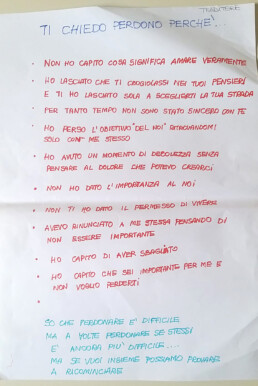 TI CHIEDO PERDONO PERCHE'...
• NON HO CAPITO COSA SIGNIFICA AMARE VERAMENTE
• HO LASCIATO CHE TI CROGIOLASSI NEI TUOI PENSIERI
E TI HO LASCIATO SOLA A SCEGLIERTI LA TUA STRADA
• PER TANTO TEMPO NON SONO STATO SINCERO CON TE
• HO PERSO L'OBIETTIVO "DEL NOI"
SOLO CON ME STESSO
• HO AVUTO UN MOMENTO DI DEBOLEZZA SENZA
PENSARE AL DOLORE CHE POTEVO CREARCI
• NON HO DATO L'IMPORTANZA AL NOI
• NON TI HO DATO IL PERMESSO DI VIVERE
• AVEVO RINUNCIATO A ME STESSA PENSANDO DI
NON ESSERE IMPORTANTE
• HO CAPITO DI AVER SBAGLIATO
• HO CAPITO CHE SEI IMPORTANTE PER ME E
NON VOGLIO PERDERTI
•
SO CHE PERDONARE E' DIFFICILE
MA A VOLTE PERDONARE SE STESSI
E' ANCORA PIU' DIFFICILE....
MA SE VUOI INSIEME POSSIAMO PROVARE
A RICOMINCIARE